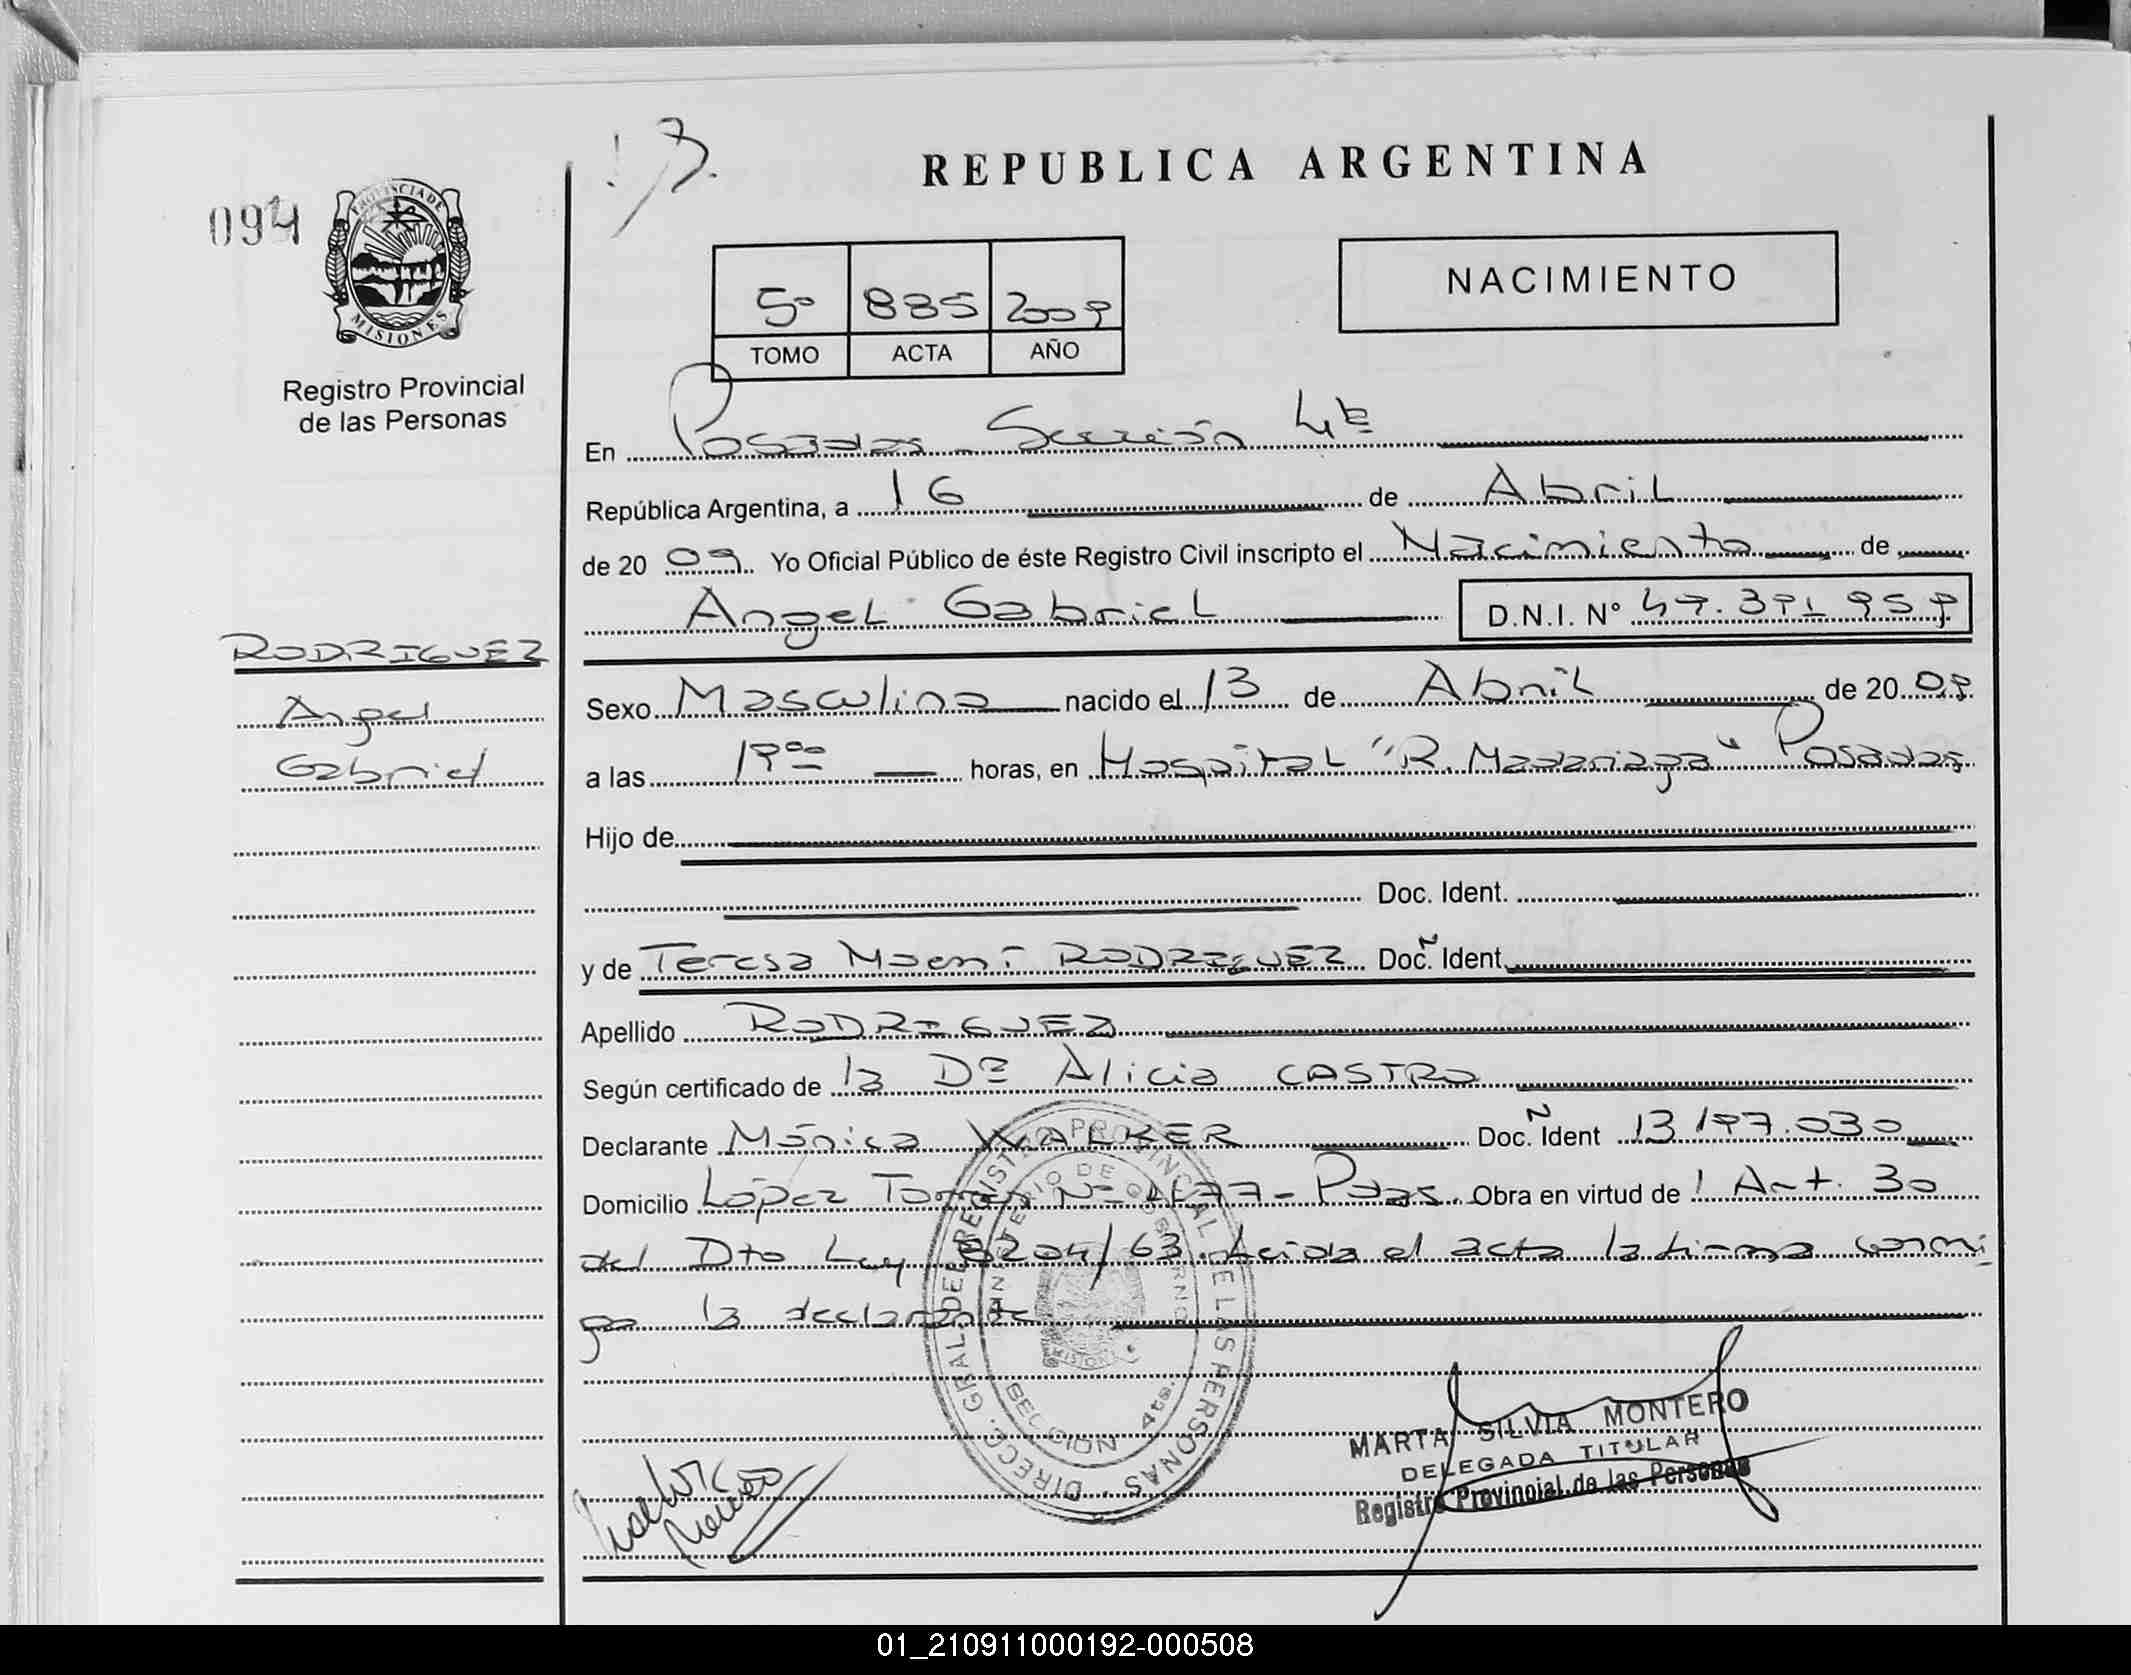 REPUBLICA ARGENTINA
094
PROVINCIA DE
MISIONES
Registro Provincial
de las Personas
NACIMIENTO
5º 885 2009
TOMO ACTA AÑO
En Posadas - Sección 4ta
República Argentina, a 16 de Abril
de 20 09 Yo Oficial Público de éste Registro Civil inscripto el Nacimiento de
Angel Gabriel D.N.I. Nº 49.391.959
RODRIGUEZ
Angel
Gabriel
Sexo Masculino nacido el 13 de Abril de 20 09
a las 19 00 horas, en Hospital "R. Madariaga" Posadas
Hijo de
Doc. Ident.
y de Teresa Noemí RODRIGUEZ Doc. N Ident.
Apellido RODRIGUEZ
Según certificado de la Dra Alicia CASTRO
Declarante Mónica WALKER Doc. N Ident 13.197.030
Domicilio López Torres Nº 4677 - Pdas. Obra en virtud de Art. 30
del Dto Ley 8204/63. Leída el acta la firma conmi
go la declarante
DIRECC. GRAL DEL REGISTRO PROVINCIAL DE LAS PERSONAS
MINISTERIO DE GOBIERNO
SECCION 4ta.
MARTA SILVIA MONTERO
DELEGADA TITULAR
Registro Provincial de las Personas
01_210911000192-000508